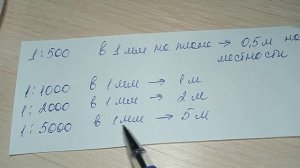 1:500 в 1 мм на плане → 0,5 м на
местности
1:1000 в 1 мм → 1 м
1:2000 в 1 мм → 2 м
1:5000 в 1 мм → 5 м